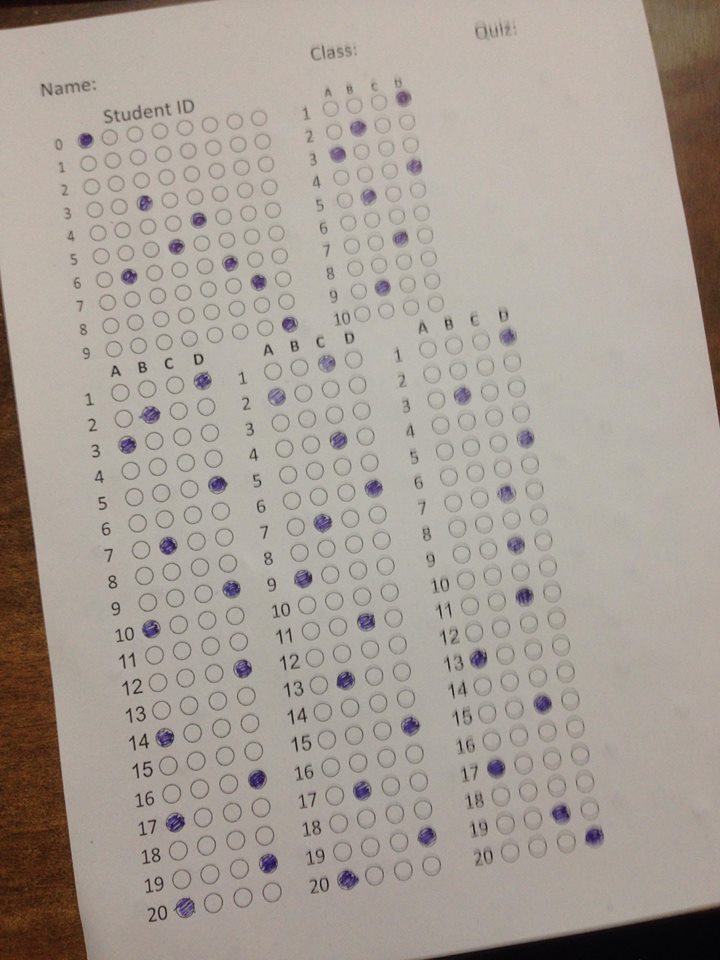 Name:
Class:
Quiz:
Student ID
0
1
2
3
4
5
6
7
8
9
A B C D
1
2
3
4
5
6
7
8
9
10
A B C D
1
2
3
4
5
6
7
8
9
10
11
12
13
14
15
16
17
18
19
20
A B C D
1
2
3
4
5
6
7
8
9
10
11
12
13
14
15
16
17
18
19
20
A B C D
1
2
3
4
5
6
7
8
9
10
11
12
13
14
15
16
17
18
19
20